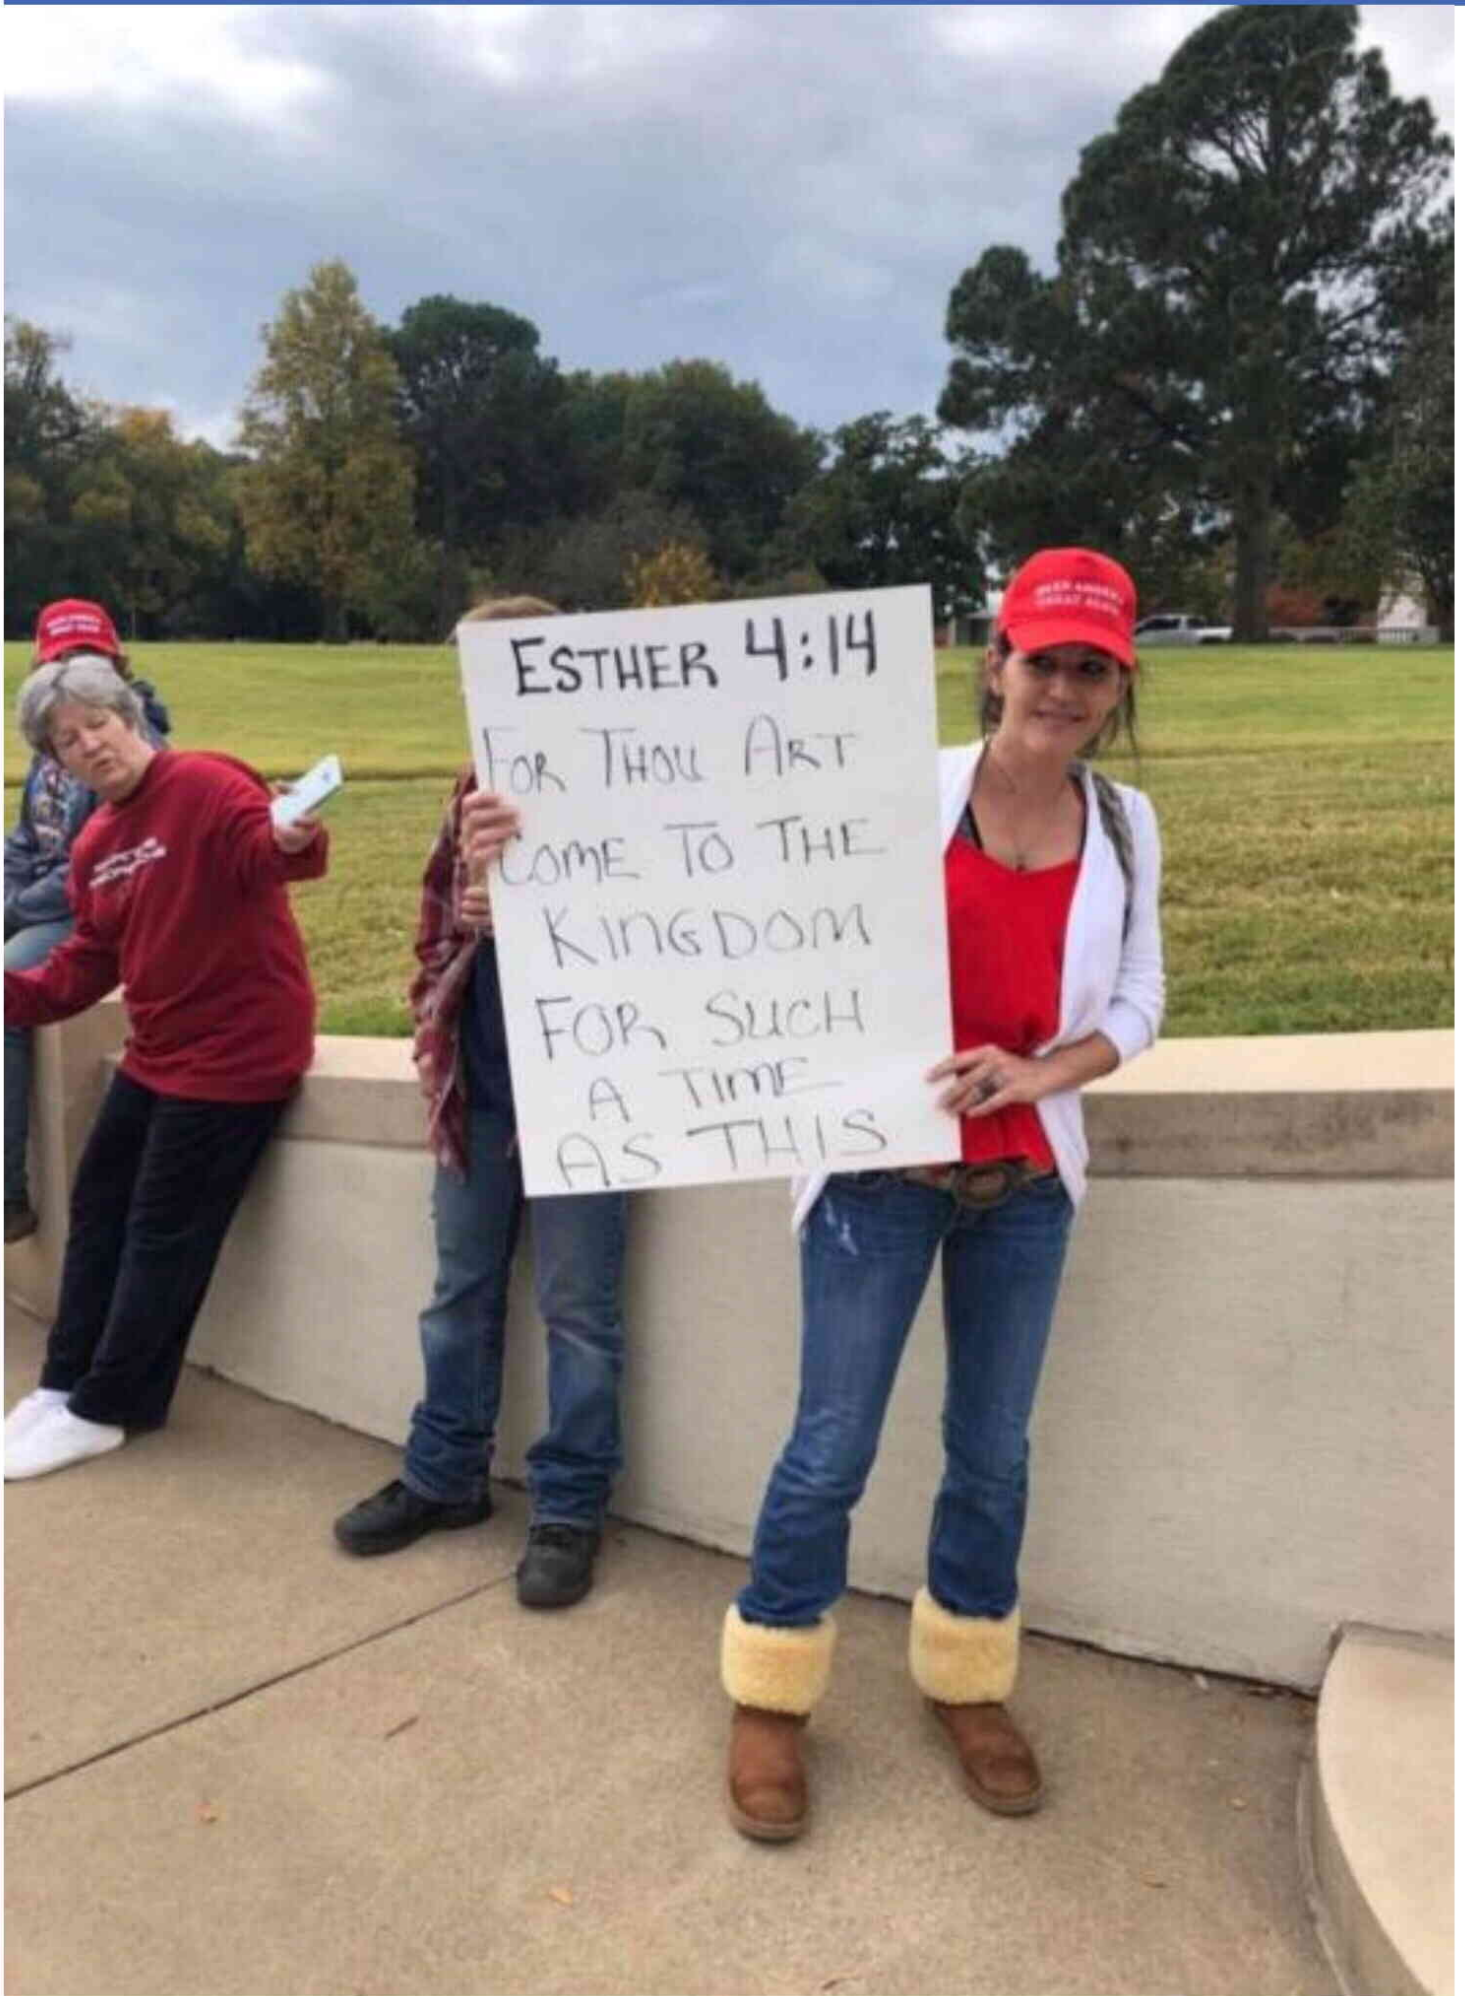 ESTHER 4:14
FOR THOU ART
COME TO THE
KINGDOM
FOR SUCH
A TIME
AS THIS
GREAT AGAIN